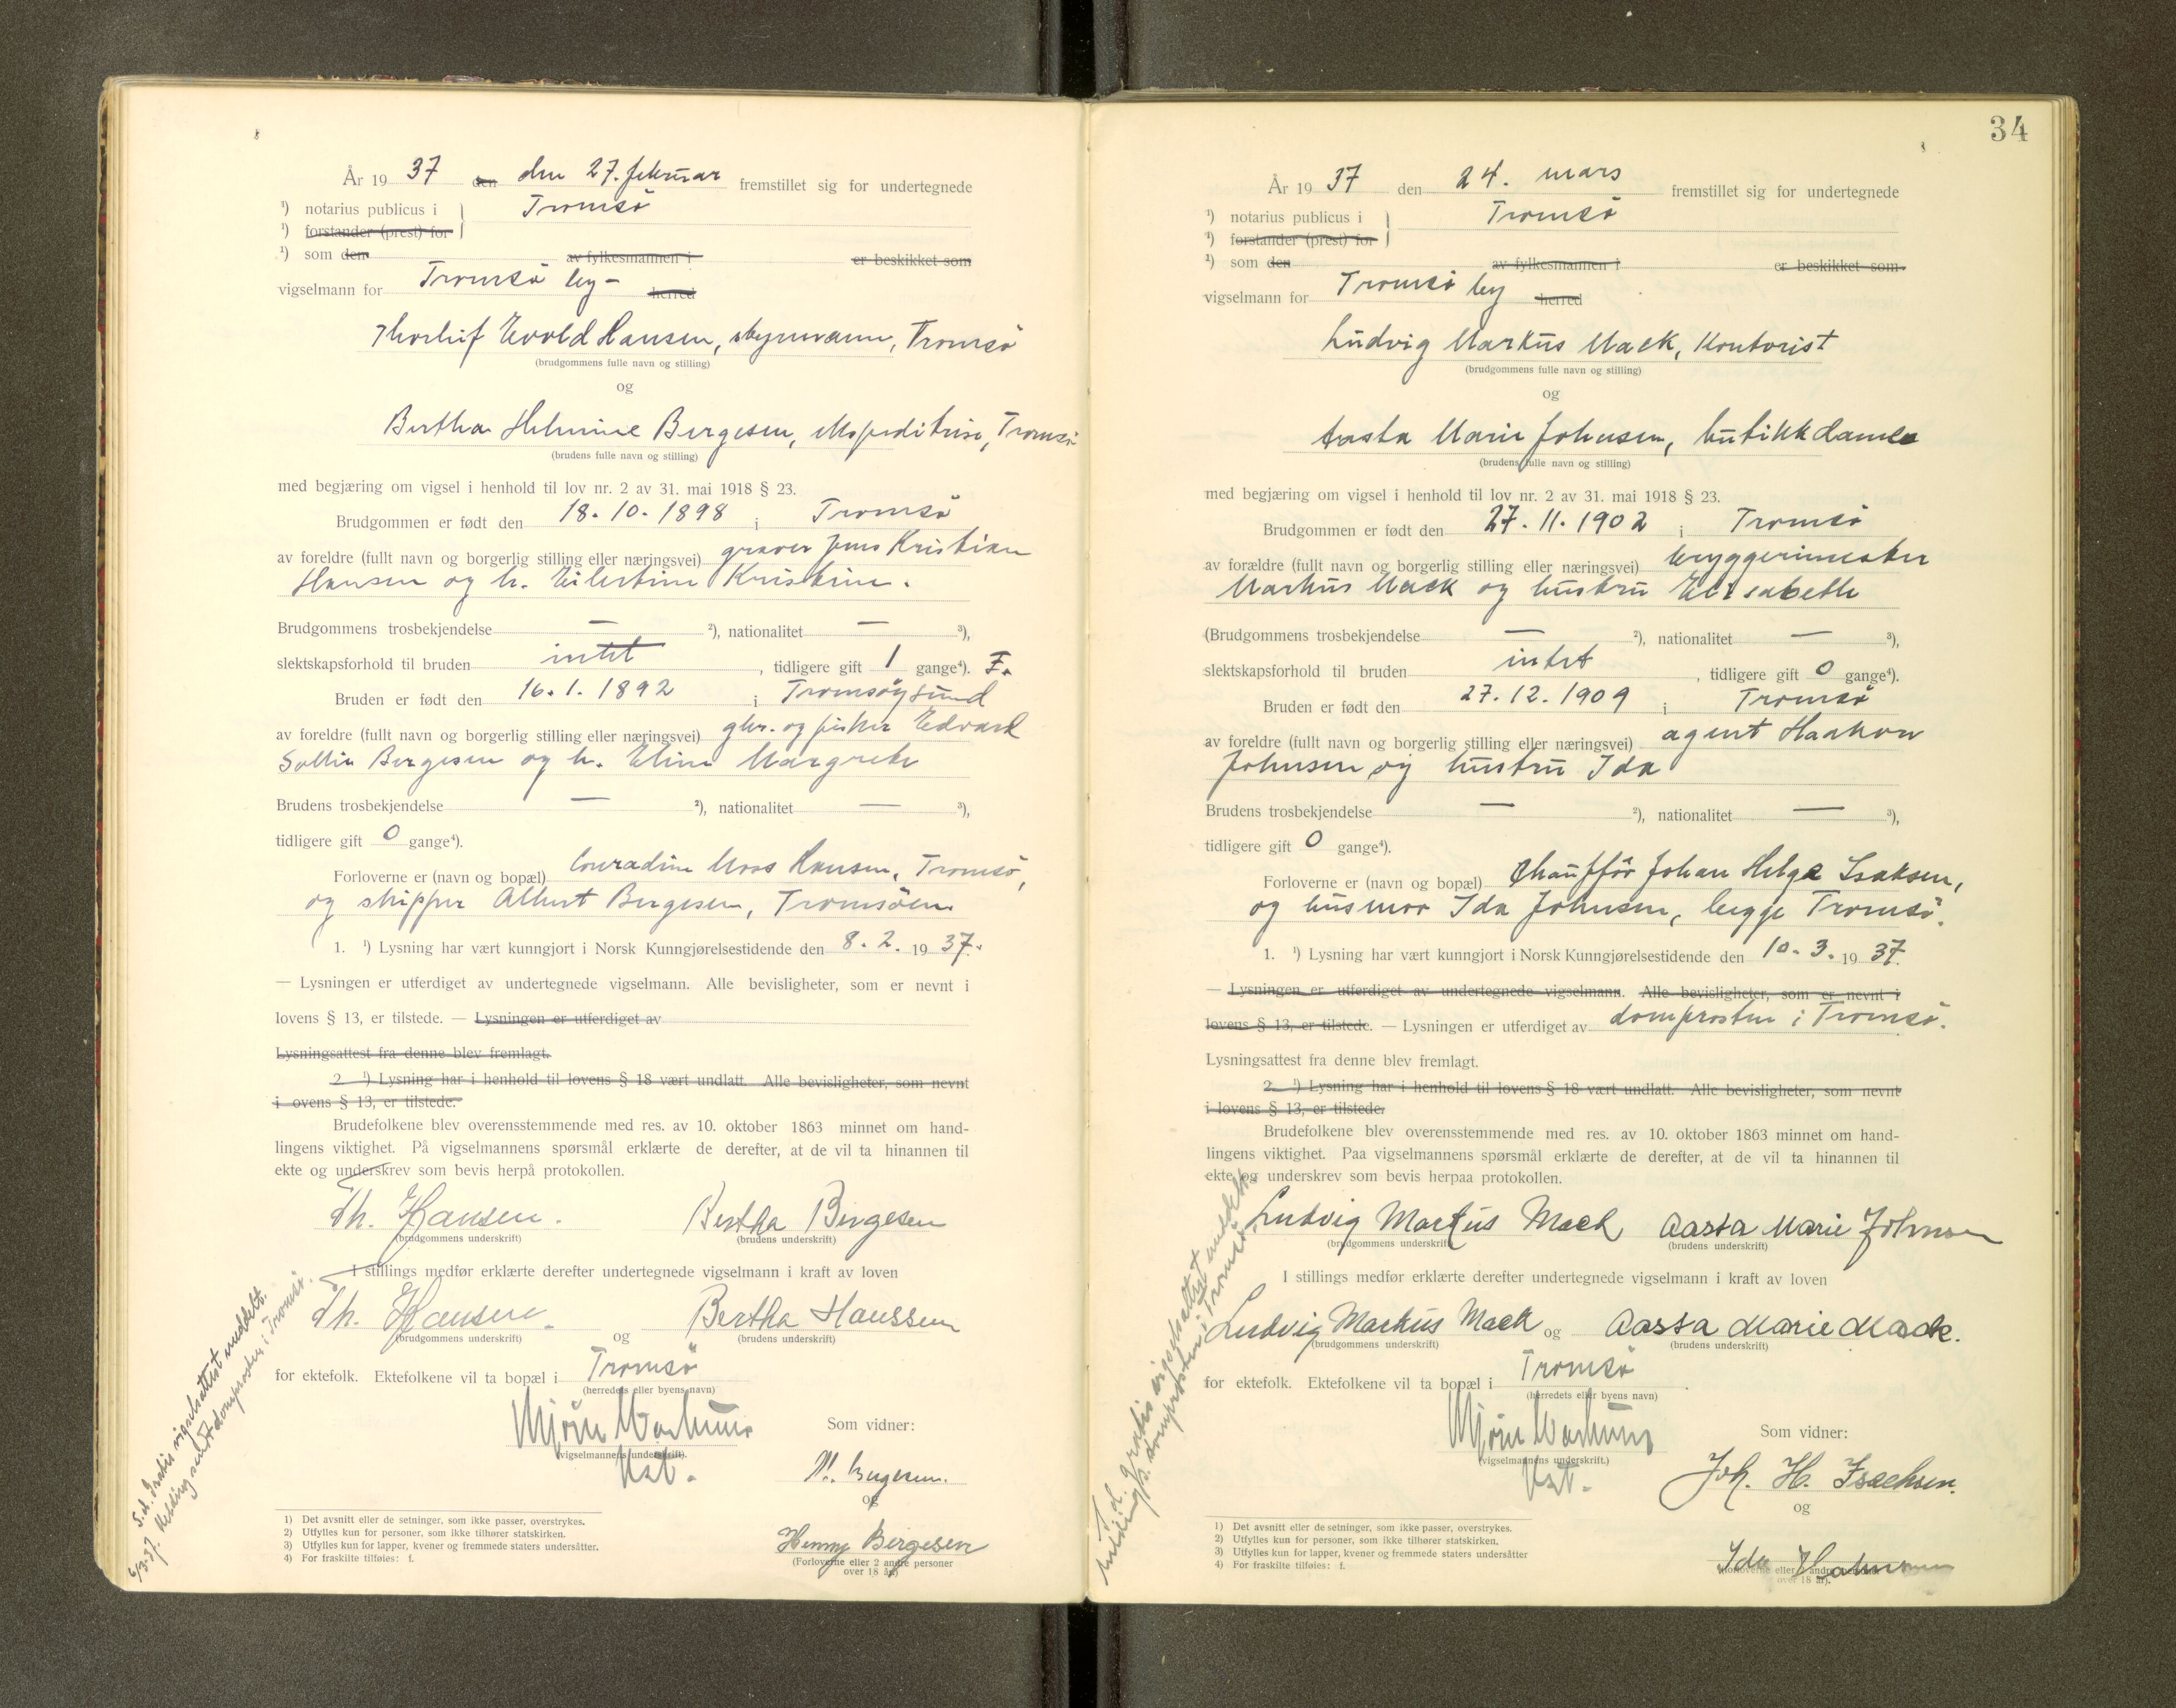 År 19 37 den den 27. februar fremstillet sig for undertegnede
¹) notarius publicus i Tromsø
¹) forstander (prest) for
¹) som den av fylkesmannen i er beskikket som
vigselmann for Tromsø by - herred
Thorleif Evold Hansen, styrmann, Tromsø
(brudgommens fulle navn og stilling)
og
Bertha Helmine Bergesen, ekspeditrise, Tromsø
(brudens fulle navn og stilling)
med begjæring om vigsel i henhold til lov nr. 2 av 31. mai 1918 § 23.
Brudgommen er født den 18.10.1898 i Tromsø
av foreldre (fullt navn og borgerlig stilling eller næringsvei) graver Jens Kristian
Hansen og h. Eilertine Kristine.
Brudgommens trosbekjendelse — ²), nationalitet — ³),
slektskapsforhold til bruden intet, tidligere gift 1 gange⁴). F.
Bruden er født den 16.1.1892 i Tromsøysund
av foreldre (fullt navn og borgerlig stilling eller næringsvei) gbr. og fisker Edvard
Bergesen og h. Eline Margrete
Brudens trosbekjendelse — ²), nationalitet — ³),
tidligere gift 0 gange⁴).
Forloverne er (navn og bopæl) Conradine Moos Hansen, Tromsø,
og skipper Albert Bergesen, Tromsøen
1. ¹) Lysning har vært kunngjort i Norsk Kunngjørelsestidende den 8.2. 19 37.
— Lysningen er utferdiget av undertegnede vigselmann. Alle bevisligheter, som er nevnt i
lovens § 13, er tilstede. — Lysningen er utferdiget av
Lysningsattest fra denne blev fremlagt.
2 ¹) Lysning har i henhold til lovens § 18 vært undlatt. Alle bevisligheter, som nevnt
i ovens § 13, er tilstede.
Brudefolkene blev overensstemmende med res. av 10. oktober 1863 minnet om hand-
lingens viktighet. På vigselmannens spørsmål erklærte de derefter, at de vil ta hinannen til
ekte og underskrev som bevis herpå protokollen.
Th. Hansen. Bertha Bergesen
(brudgommens underskrift) (brudens underskrift)
I stillings medfør erklærte derefter undertegnede vigselmann i kraft av loven
Th. Hansen. og Bertha Hanssen
(brudgommens underskrift) (brudens underskrift)
for ektefolk. Ektefolkene vil ta bopæl i Tromsø
(herredets eller byens navn)
Som vidner:
(vigselmannens underskrift).
Kst.
Bergesen.
og
Henny Bergesen
(Forloverne eller 2 andre personer
over 18 år)
S.d. Gratis vigselsattest meddelt.
6/3.37. Melding sendt domprosten i Tromsø.
1) Det avsnitt eller de setninger, som ikke passer, overstrykes.
2) Utfylles kun for personer, som ikke tilhører statskirken.
3) Utfylles kun for lapper, kvener og fremmede staters undersåtter.
4) For fraskilte tilføies: f.
34
År 19 37 den 24. mars fremstillet sig for undertegnede
¹) notarius publicus i Tromsø
¹) forstander (prest) for
¹) som den av fylkesmannen i er beskikket som
vigselmann for Tromsø by herred
Ludvig Markus Mack, kontorist
(brudgommens fulle navn og stilling)
og
Aasta Marie Johnsen, butikkdame
(brudens fulle navn og stilling)
med begjæring om vigsel i henhold til lov nr. 2 av 31. mai 1918 § 23.
Brudgommen er født den 27.11.1902 i Tromsø
av forældre (fullt navn og borgerlig stilling eller næringsvei) bryggerimester
Markus Mack og hustru Elisabeth
(Brudgommens trosbekjendelse — ²), nationalitet — ³),
slektskapsforhold til bruden intet, tidligere gift 0 gange⁴).
Bruden er født den 27.12.1909 i Tromsø
av foreldre (fullt navn og borgerlig stilling eller næringsvei) agent Haakon
Johnsen og hustru Ida
Brudens trosbekjendelse — ²), nationalitet — ³),
tidligere gift 0 gange⁴).
Forloverne er (navn og bopæl) Chauffør Johan Helge Isaksen,
og husmor Ida Johnsen, begge Tromsø.
1. ¹) Lysning har vært kunngjort i Norsk Kunngjørelsestidende den 10.3. 19 37.
— Lysningen er utferdiget av undertegnede vigselmann. Alle bevisligheter, som er nevnt i
lovens § 13, er tilstede. — Lysningen er utferdiget av domprosten i Tromsø.
Lysningsattest fra denne blev fremlagt.
2 ¹) Lysning har i henhold til lovens § 18 vært undlatt. Alle bevisligheter, som nevnt
i lovens § 13, er tilstede.
Brudefolkene blev overensstemmende med res. av 10. oktober 1863 minnet om hand-
lingens viktighet. Paa vigselmannens spørsmål erklærte de derefter, at de vil ta hinannen til
ekte og underskrev som bevis herpaa protokollen.
Ludvig Markus Mack Aasta Marie Johnsen
(brudgommens underskrift) (brudens underskrift)
I stillings medfør erklærte derefter undertegnede vigselmann i kraft av loven
Ludvig Markus Mack og Aasta Marie Mack.
(brudgommens underskrift) (brudens underskrift)
for ektefolk. Ektefolkene vil ta bopæl i Tromsø
(herredets eller byens navn)
Som vidner:
(vigselmannens underskrift.)
Kst.
Joh. H. Isachsen.
og
Ida Johnsen
(Forloverne eller 2 andre personer
over 18 år).
S.d. gratis vigselsattest meddelt.
Melding domprosten i Tromsø.
1) Det avsnitt eller de setninger, som ikke passer, overstrykes.
2) Utfylles kun for personer, som ikke tilhører statskirken.
3) Utfylles kun for lapper, kvener og fremmede staters undersåtter
4) For fraskilte tilføies: f.